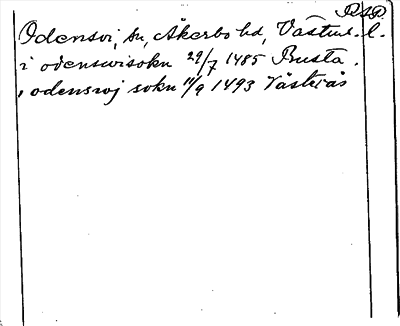 RAP.
Odensvi, sn, Åkerbo hd, Västml. l.
i odenswisokn 29/7 1485 Brusta.
i odensvoj sokn 11/9 1493 Västerås